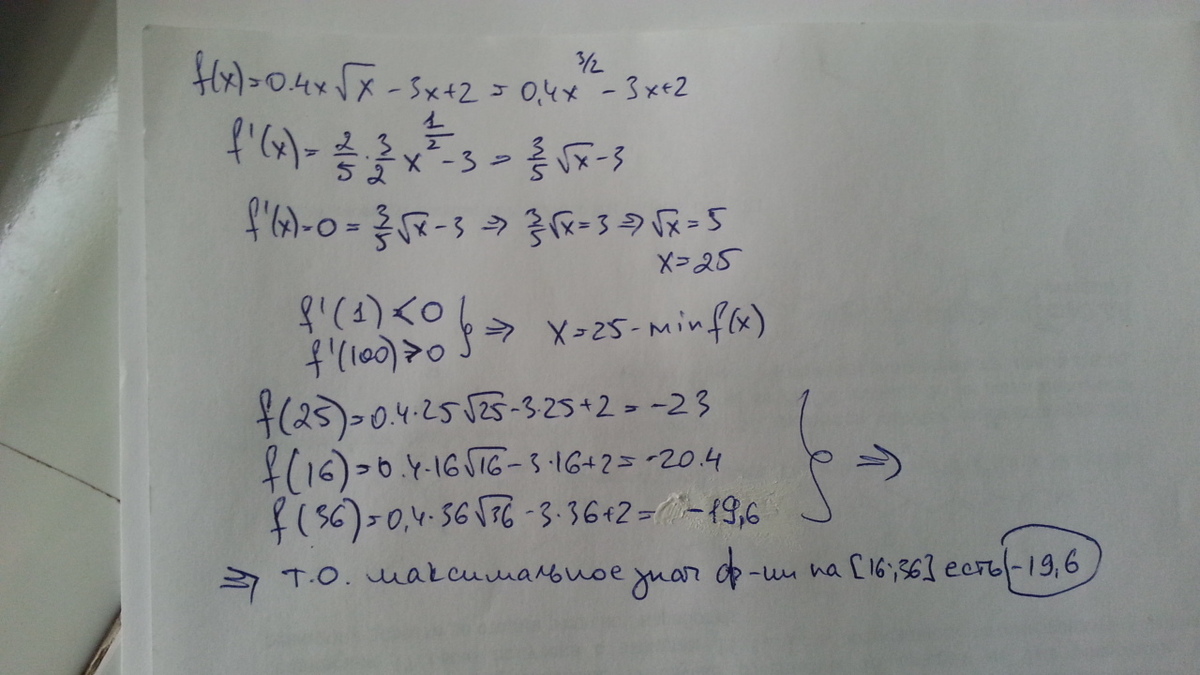 f(x)=0.4x√x - 3x+2 = 0,4x^3/2 - 3x+2
f'(x)= 2/5 · 3/2 x^1/2 - 3 = 3/5 √x - 3
f'(x)=0 = 3/5 √x - 3 ⇒ 3/5 √x = 3 ⇒ √x = 5
x=25
f'(1) < 0
f'(100) > 0 } ⇒ x=25 - min f(x)
f(25)=0.4·25√25 - 3·25+2 = -23
f(16)=0.4·16√16 - 3·16+2 = -20.4
f(36)=0,4·36√36 - 3·36+2 = -19,6 } ⇒
⇒ т.о. максимальное знач ф-ии на [16;36] есть -19,6